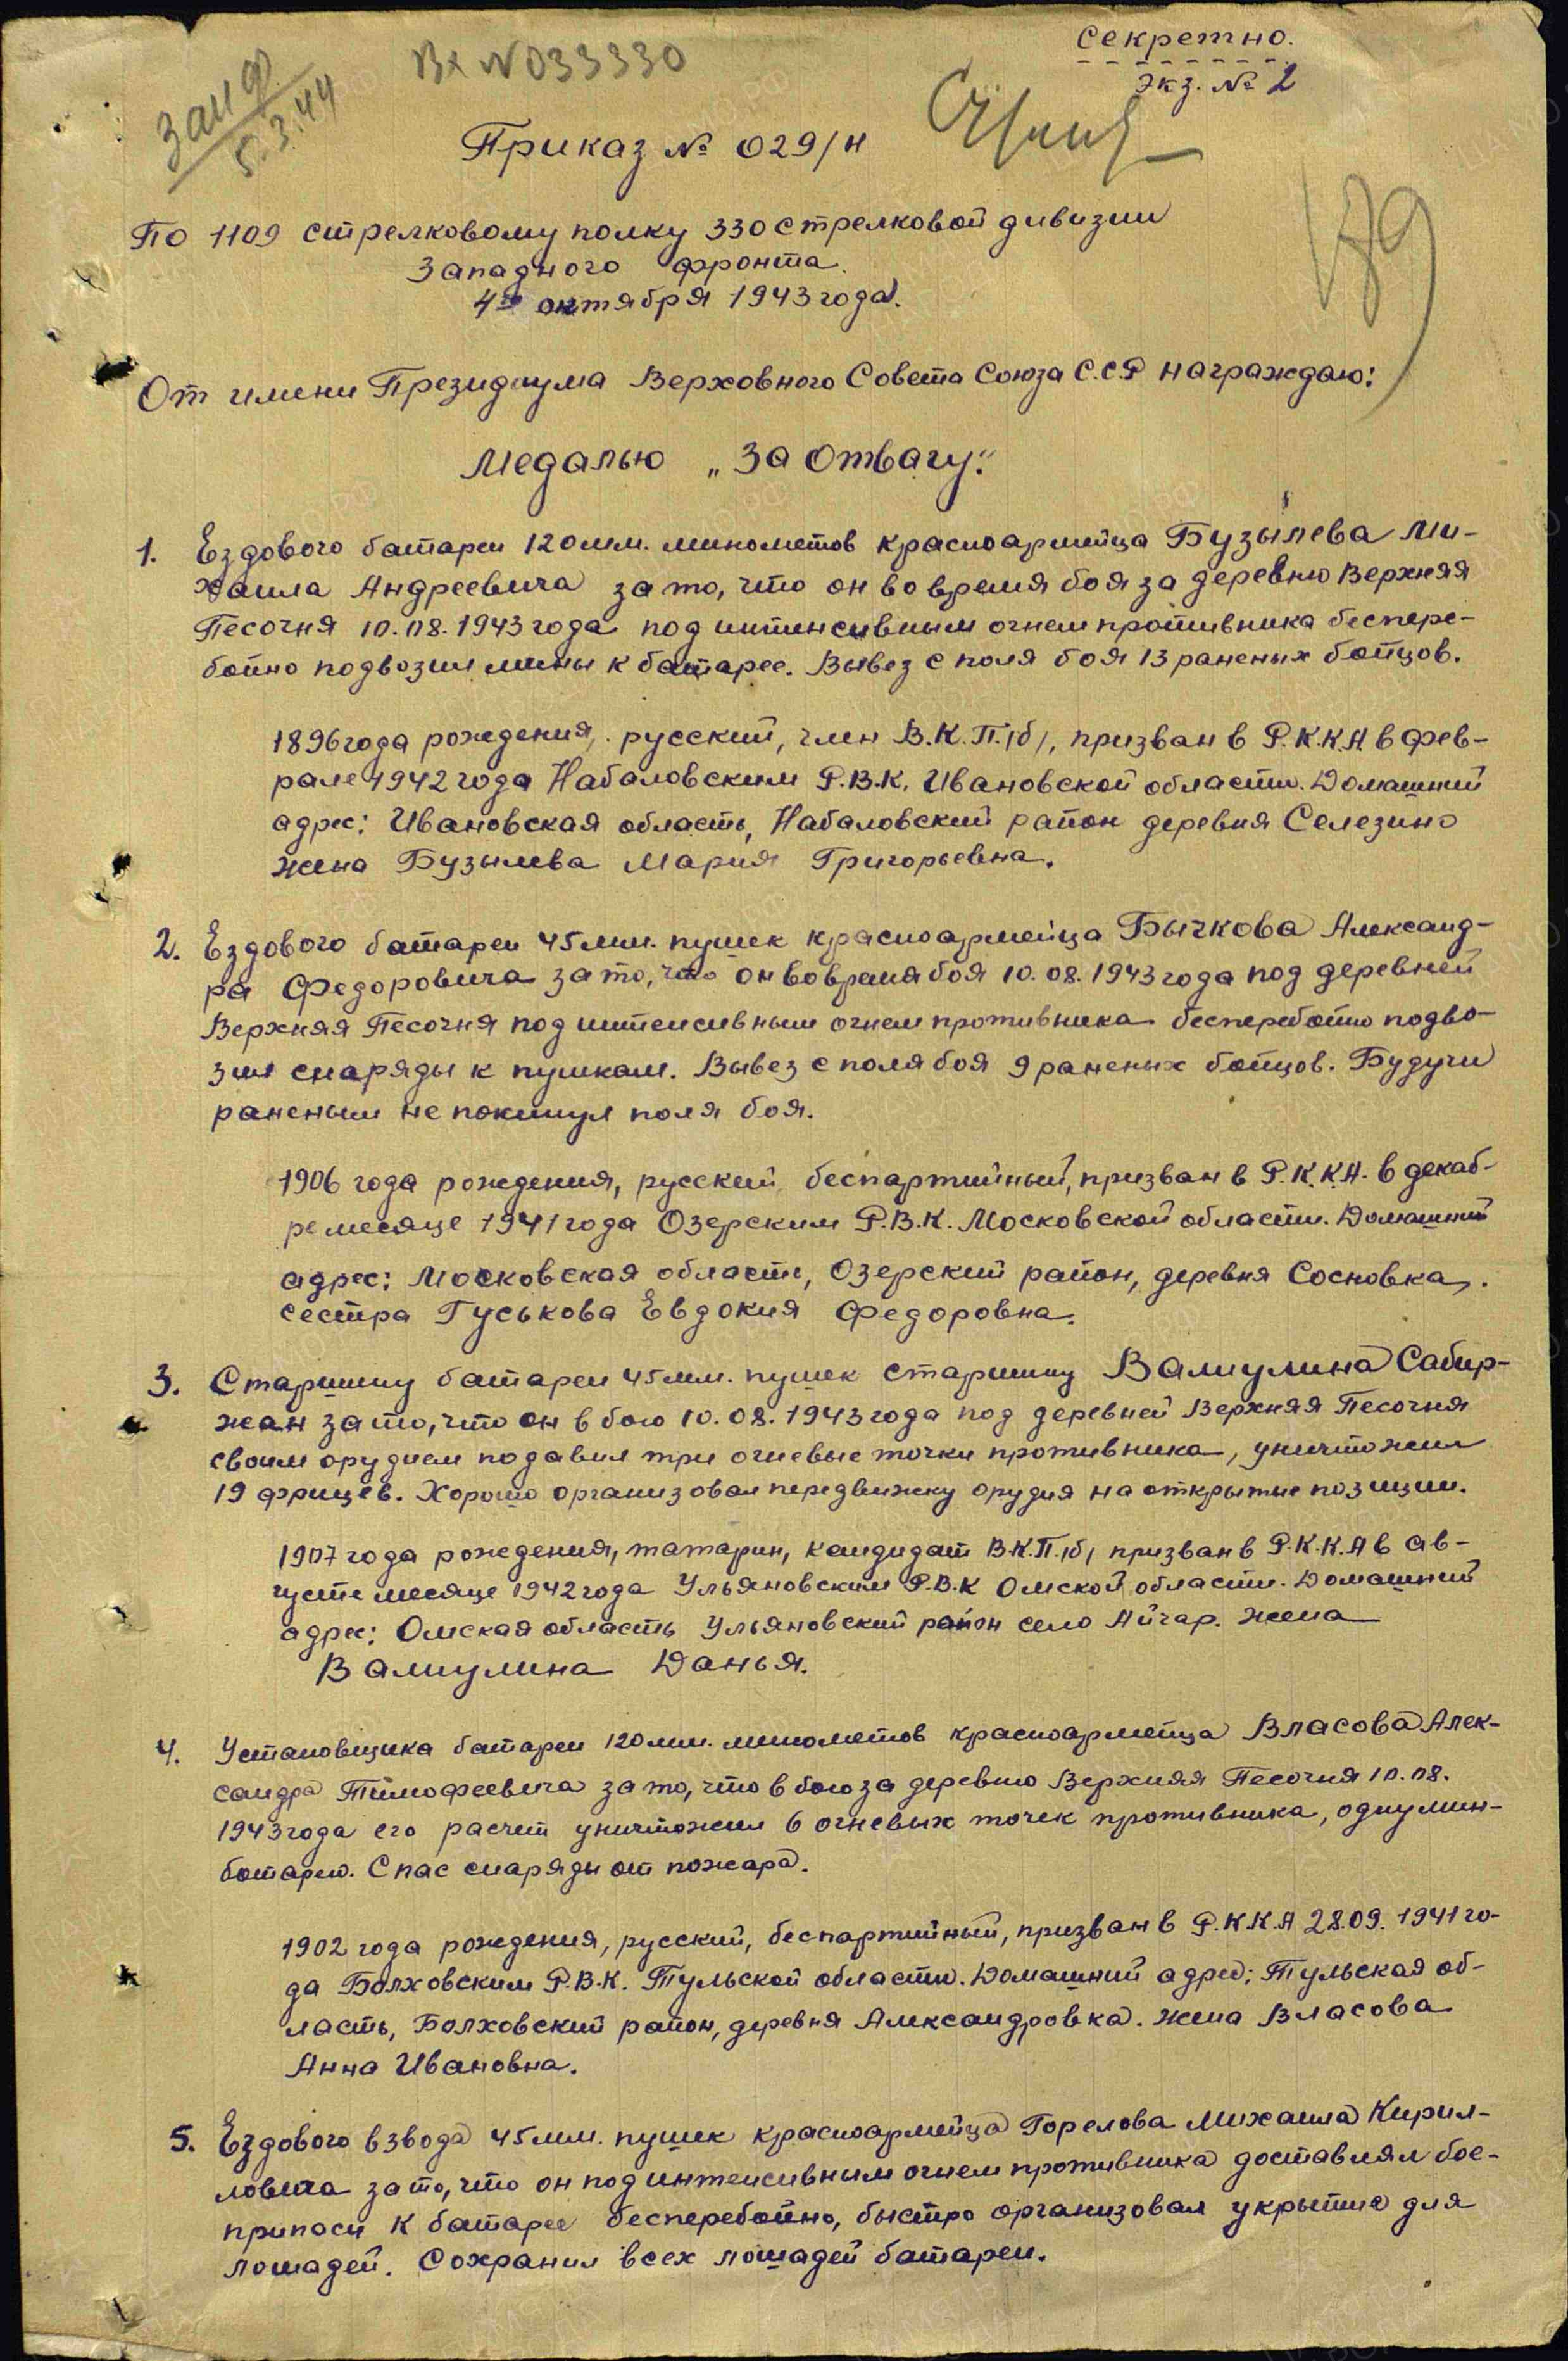 Секретно.
экз. № 2
Вх N 033330
5.3.44
Приказ № 029/н
179
По 1109 стрелковому полку 330 стрелковой дивизии
Западного фронта.
4го октября 1943 года.
От имени Президиума Верховного Совета Союза С.С.Р награждаю:
Медалью „За Отвагу".
1. Ездового батареи 120 мм. минометов красноармейца Бузылева Ми-
хаила Андреевича за то, что он во время боя за деревню Верхняя
Песочня 10.08.1943 года под интенсивным огнем противника беспере-
бойно подвозил мины к батарее. Вывез с поля боя 13 раненых бойцов.
1896 года рождения, русский, член В.К.П./б/, призван в Р.К.К.А в фев-
рале 1942 года Набаловским Р.В.К. Ивановской области. Домашний
адрес: Ивановская область, Набаловский район деревня Селезино
жена Бузылева Мария Григорьевна.
2. Ездового батареи 45 мм. пушек красноармейца Бычкова Александ-
ра Федоровича за то, что он во время боя 10.08.1943 года под деревней
Верхняя Песочня под интенсивным огнем противника бесперебойно подво-
зил снаряды к пушкам. Вывез с поля боя 9 раненых бойцов. Будучи
раненым не покинул поля боя.
1906 года рождения, русский, беспартийный, призван в Р.К.К.А. в декаб-
ре месяце 1941 года Озерским Р.В.К. Московской области. Домашний
адрес: Московская область, Озерский район, деревня Сосновка,.
сестра Гуськова Евдокия Федоровна.
3. Старшину батареи 45 мм. пушек старшину Валиулина Сабир-
жан за то, что он в бою 10.08.1943 года под деревней Верхняя Песочня
своим орудием подавил три огневые точки противника, уничтожил
19 фрицев. Хорошо организовал передвижку орудия на открытые позиции.
1907 года рождения, татарин, кандидат В.К.П./б/ призван в Р.К.К.А в ав-
густе месяце 1942 года Ульяновским Р.В.К Омской области. Домашний
адрес: Омская область Ульяновский район село Айчар. Жена
Валиулина Данья.
4. Установщика батареи 120 мм. минометов красноармейца Власова Алек-
сандра Тимофеевича за то, что в бою за деревню Верхняя Песочня 10.08.
1943 года его расчет уничтожил 6 огневых точек противника, одну мин-
батарею. Спас снаряды от пожара.
1902 года рождения, русский, беспартийный, призван в Р.К.К.А 28.09.1941 го-
да Болховским Р.В.К. Тульской области. Домашний адрес: Тульская об-
ласть, Болховский район, деревня Александровка. Жена Власова
Анна Ивановна.
5. Ездового взвода 45 мм. пушек красноармейца Горелова Михаила Кирил-
ловича за то, что он под интенсивным огнем противника доставлял бое-
припасы к батарее бесперебойно, быстро организовал укрытие для
лошадей. Сохранил всех лошадей батареи.